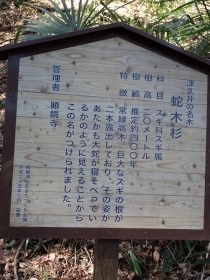 津久井の名木
蛇木杉
科目 スギ科スギ属
樹高 三〇メートル
樹齢 推定約四〇〇年
特徴 常緑高木、巨大なスギの根が
二本露出しており、その姿が
あたかも大蛇が寝そべってい
るかのように見えることから
この名がつけられました。
管理者 顕鏡寺